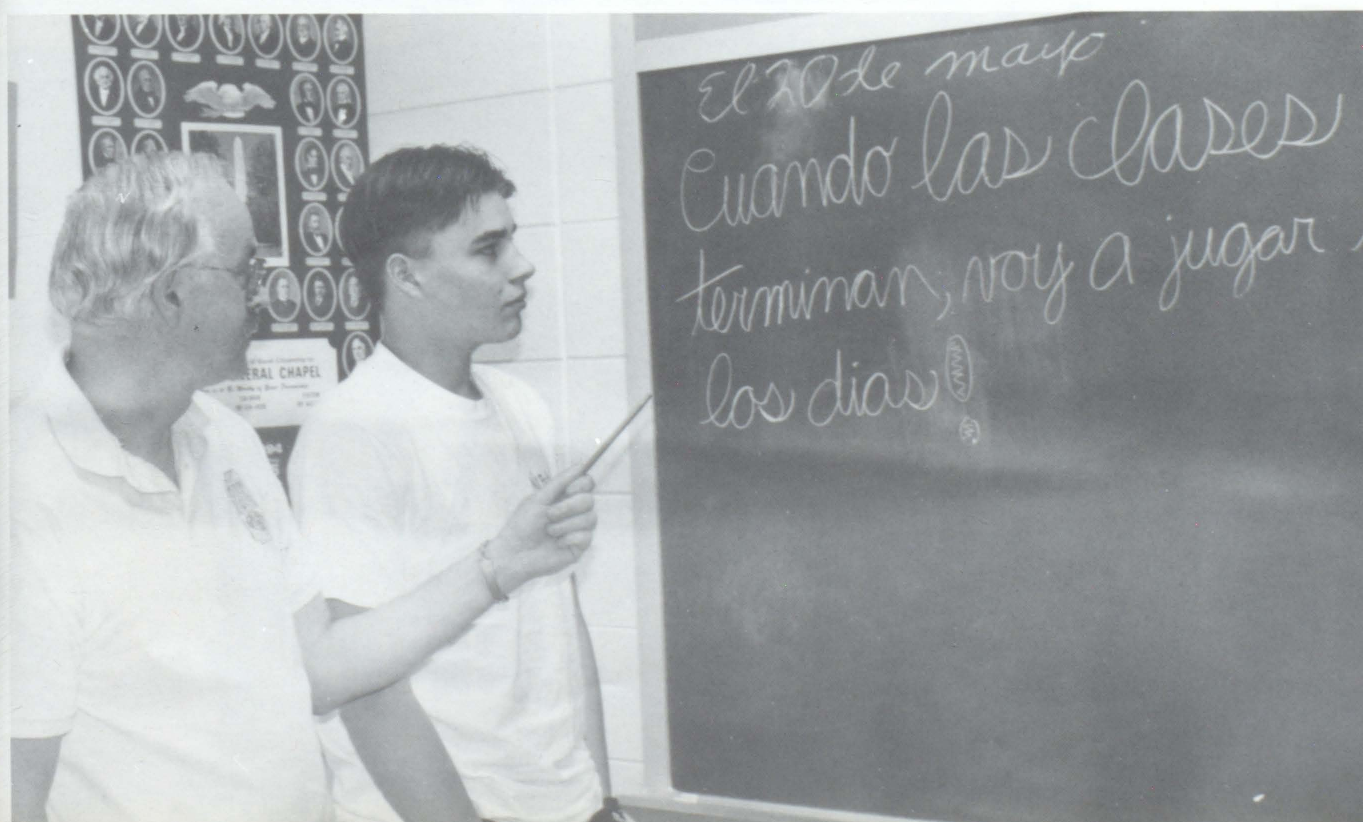 El 20 de mayo
Cuando las clases
terminan, voy a jugar
los dias!
ERAL CHAPEL